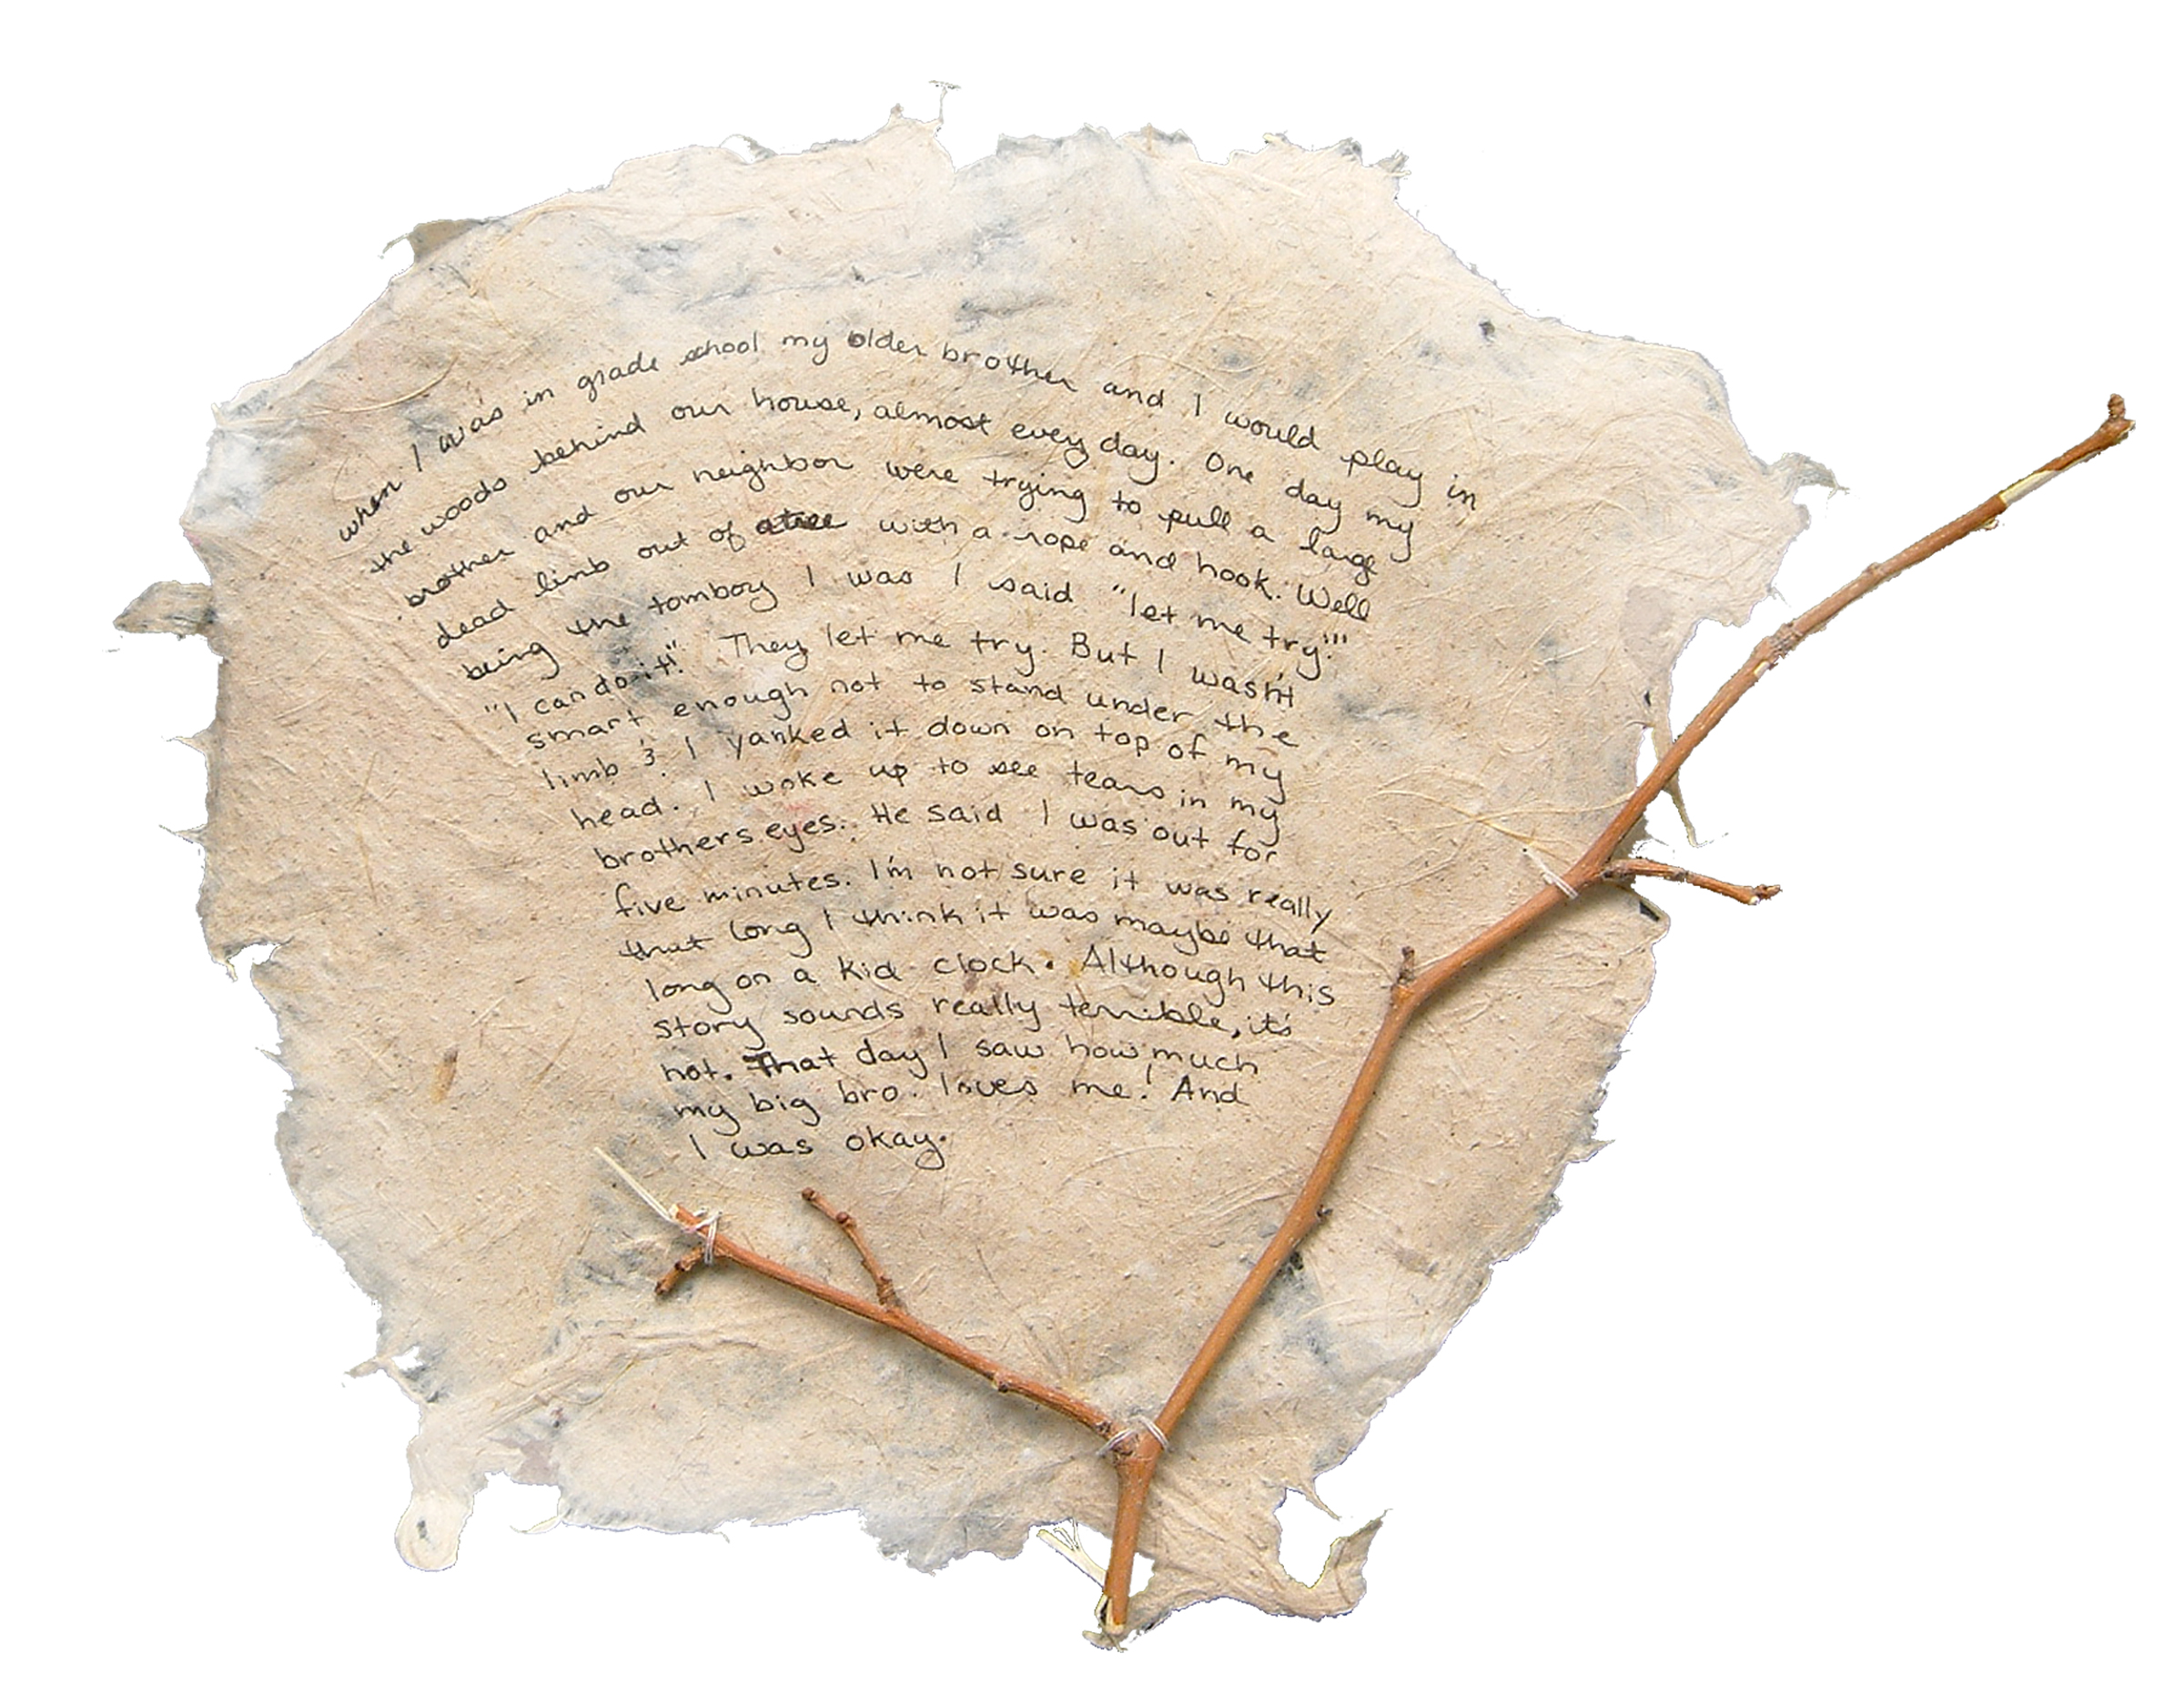 when I was in grade school my older brother and I would play in
the woods behind our house, almost every day. One day my
brother and our neighbor were trying to pull a large
dead limb out of a tree with a rope and hook. Well
being the tomboy I was I said "let me try!"
"I can do it!" They let me try. But I wasn't
smart enough not to stand under the
limb & I yanked it down on top of my
head. I woke up to see tears in my
brothers eyes. He said I was out for
five minutes. I'm not sure it was really
that long I think it was maybe that
long on a kid clock. Although this
story sounds really terrible, it's
not. That day I saw how much
my big bro. loves me! And
I was okay.